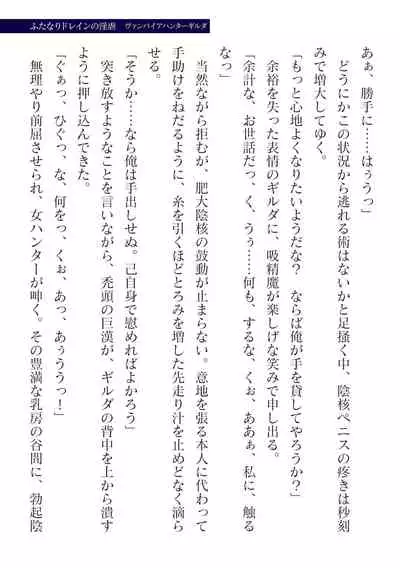 ふたなりドレインの淫虐 ヴァンパイアハンターギルダ
あぁ、勝手に……はぅうっ」
どうにかこの状況から逃れる術はないかと足掻く中、陰核ペニスの疼きは秒刻
みで増大してゆく。
「もっと心地よくなりたいようだな? ならば俺が手を貸してやろうか?」
余裕を失った表情のギルダに、吸精魔が楽しげな笑みで申し出る。
「余計な、お世話だっ、く、うぅ……何も、するな、くぉ、ああぁ、私に、触る
なっ」
当然ながら拒むが、肥大陰核の鼓動が止まらない。意地を張る本人に代わって
手助けをねだるように、糸を引くほどとろみを増した先走り汁を止めどなく滴ら
「そうか……なら俺は手出しせぬ。己自身で慰めればよかろう」
突き放すようなことを言いながら、禿頭の巨漢が、ギルダの背中を上から潰す
ように押し込んできた。
「ぐぁっ、ひぐっ、な、何をっ、くぉ、あっ、あぅううっ!」
無理やり前屈させられ、女ハンターが呻く。その豊満な乳房の谷間に、勃起陰